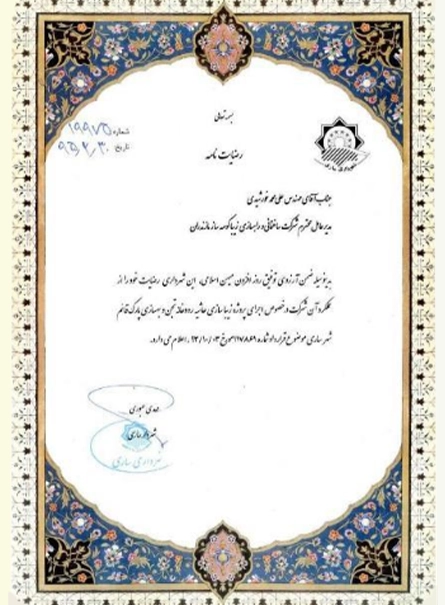 بسمه تعالی
شماره ۱۹۹۷۵
تاریخ ۹۵،۲،۳۰
شهرداری ساری
رضایت نامه
جناب آقای مهندس علی محمد خورشیدی
مدیرعامل محترم شرکت ساختمانی و راهسازی زیبا کومه ساز مازندران
بدینوسیله ضمن آرزوی توفیق روز افزون میهن اسلامی، این شهرداری رضایت خود را از
عملکرد آن شرکت در خصوص اجرای پروژه زیباسازی حاشیه رودخانه تجن و بهسازی پارک قائم
شهر ساری موضوع قرارداد شماره مورخ ۹۳/۱۰/۰۳ اعلام می دارد.
مهدی عبوری
شهردار ساری
شهرداری ساری